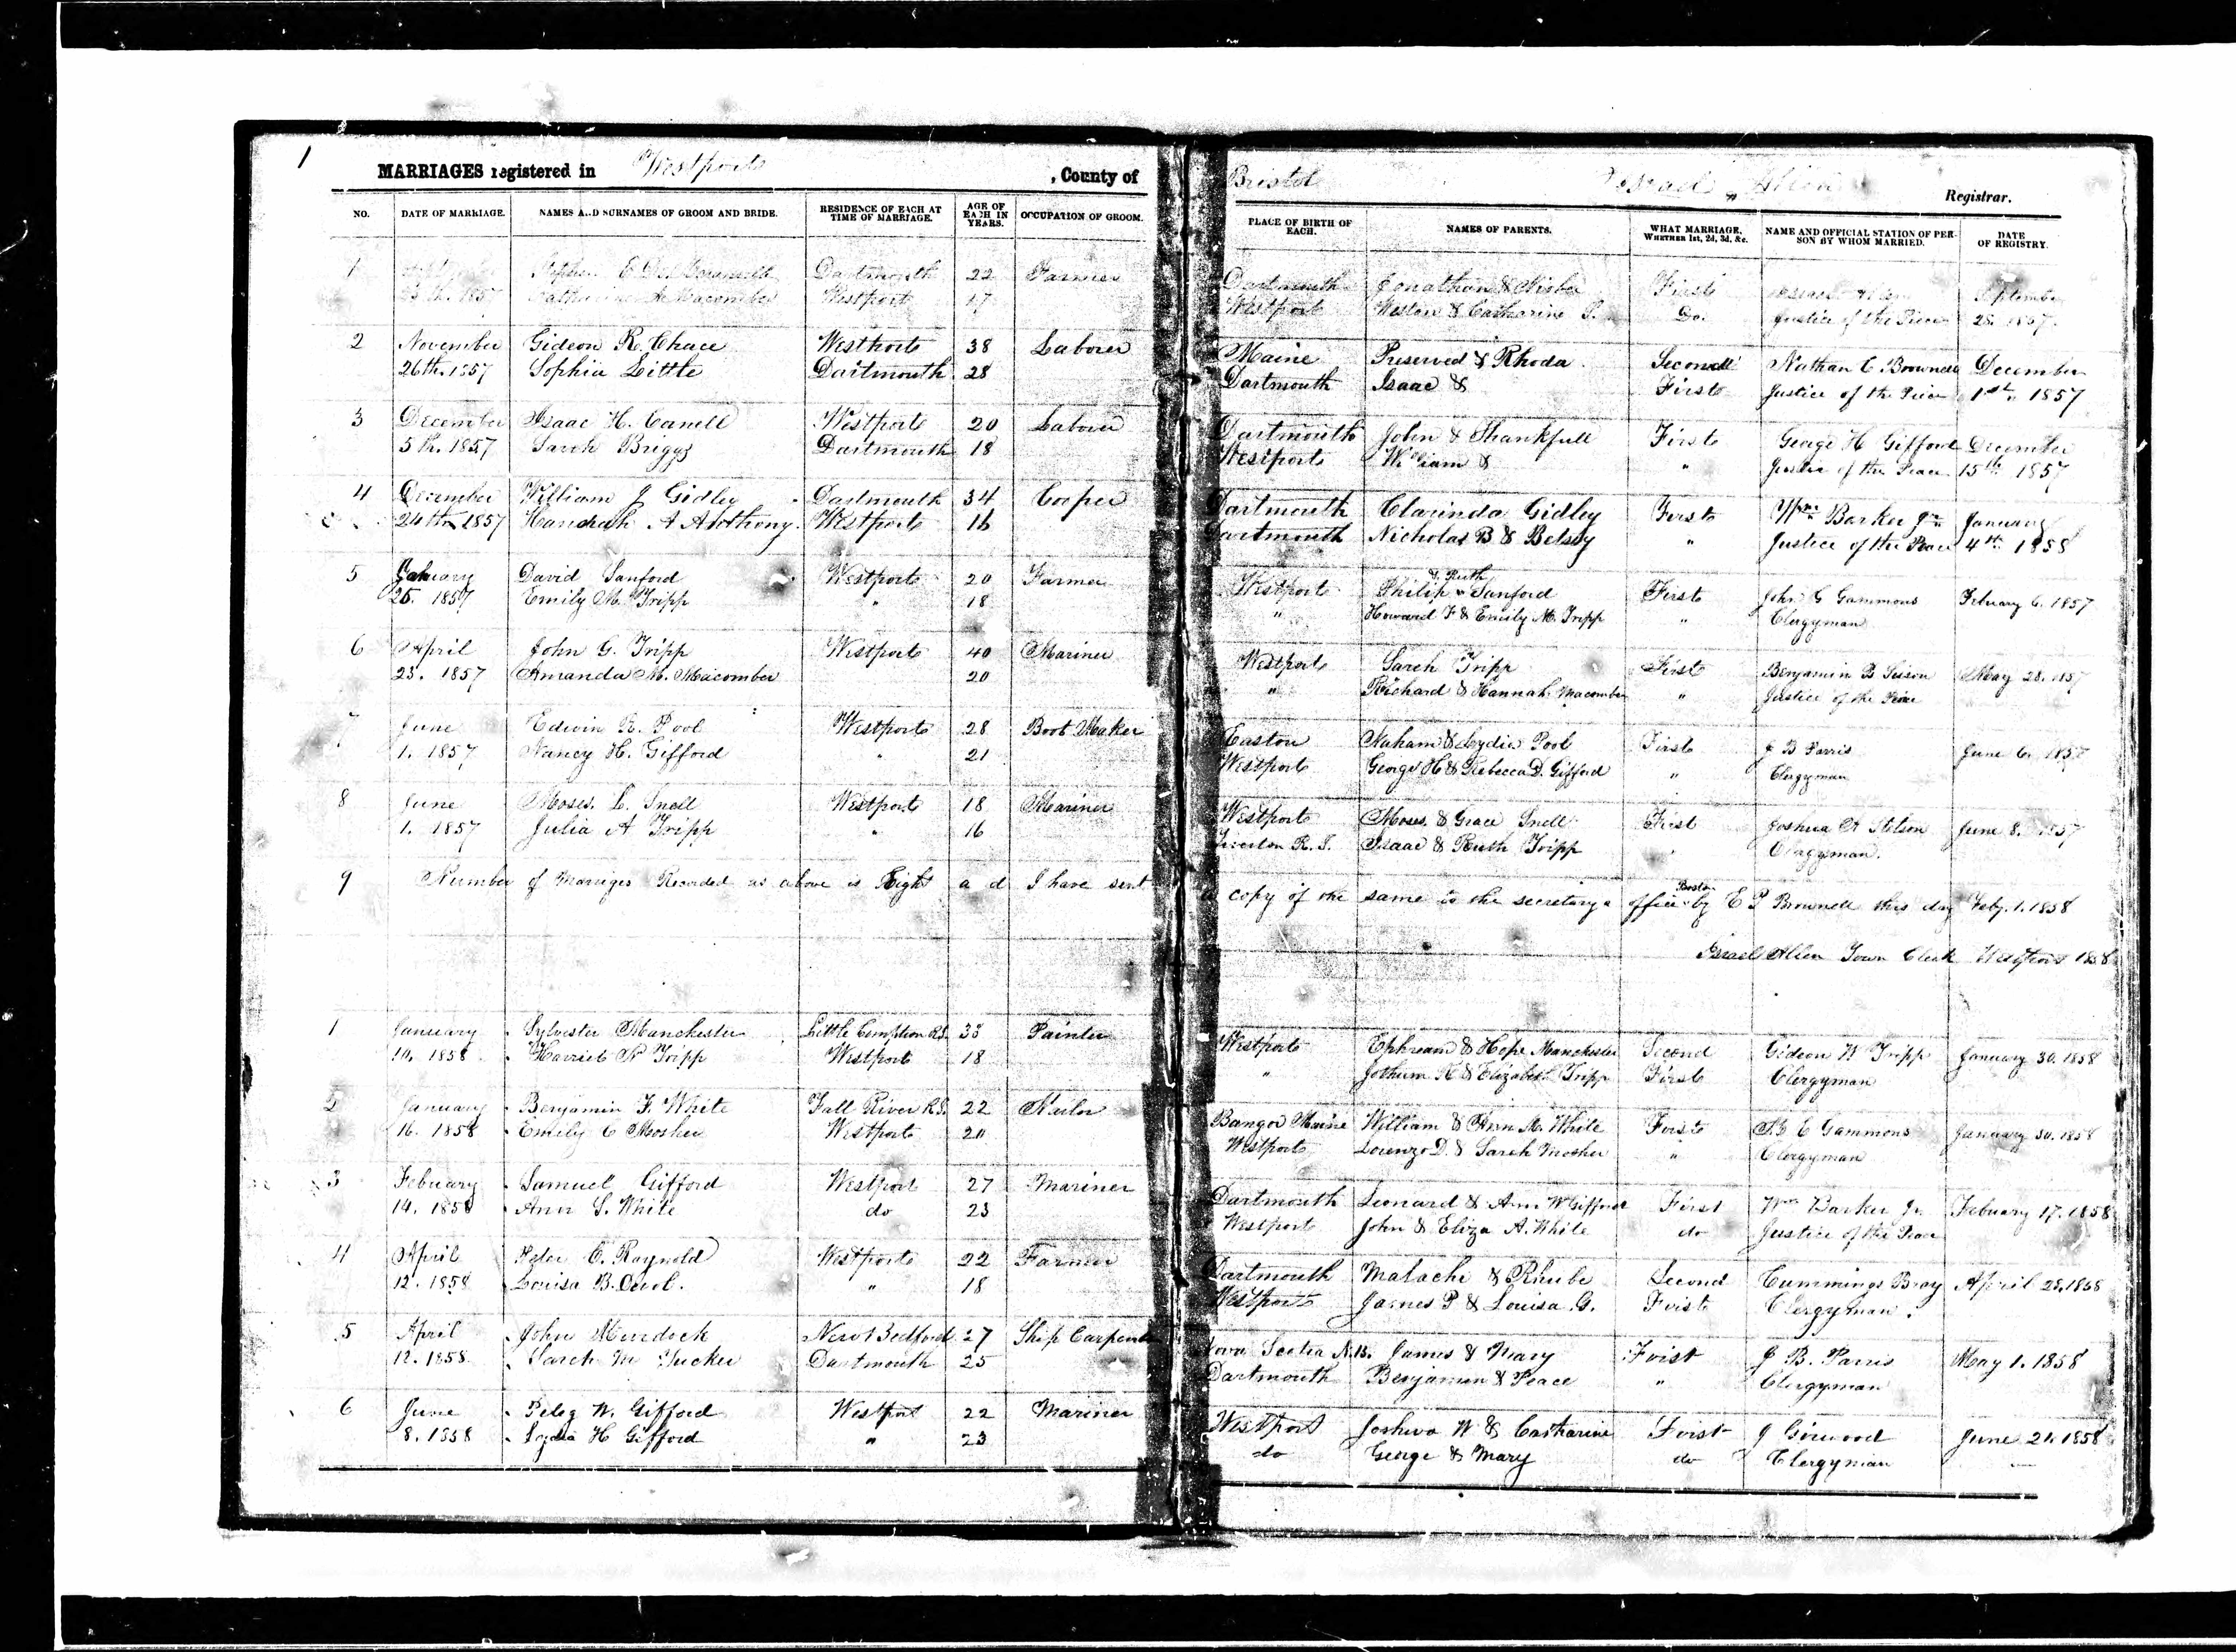 1
MARRIAGES registered in Westport , County of Bristol Israel Allen Registrar.
NO. DATE OF MARRIAGE. NAMES AND SURNAMES OF GROOM AND BRIDE. RESIDENCE OF EACH AT TIME OF MARRIAGE. AGE OF EACH IN YEARS. OCCUPATION OF GROOM. PLACE OF BIRTH OF EACH. NAMES OF PARENTS. WHAT MARRIAGE, WHETHER 1st, 2d, 3d, &c. NAME AND OFFICIAL STATION OF PERSON BY WHOM MARRIED. DATE OF REGISTRY.
1 Stephen E Dartmouth 22 Farmer Dartmouth Jonathan & First September
1857 Catharine A Macomber Westport 17 Westport Weston & Catharine S. Do. Justice of the Peace 28. 1857.
2 November Gideon R. Chace Westport 38 Laborer Maine Preserved & Rhoda Second Nathan C Brownell December
26th. 1857 Sophia Little Dartmouth 28 Dartmouth Isaac & First Justice of the Peace 1st. 1857
3 December Isaac H. Canell Westport 20 Laborer Dartmouth John & Thankfull First George H Gifford December
5th. 1857 Sarah Briggs Dartmouth 18 Westport William & " Justice of the Peace 15th 1857
4 December William J Gidley Dartmouth 34 Cooper Dartmouth Clarinda Gidley First Wm Barker Jr. January
24th 1857 Hannah A Anthony Westport 16 Dartmouth Nicholas B & Betsey " Justice of the Peace 4th 1858
5 January David Sanford Westport 20 Farmer Westport Philip & Ruth Sanford First John G Gammons February 6. 1857
25. 1857 Emily M. Tripp " 18 " Howard F & Emily M. Tripp " Clergyman
6 April John G. Tripp Westport 40 Mariner Westport Sarah Tripp First Benjamin B Sisson May 28. 1857
23. 1857 Amanda M. Macomber 20 " Richard & Hannah Macomber " Justice of the Peace
7 June Edwin R. Pool Westport 28 Boot Maker Easton Naham & Lydia Pool First J B Parris June 6. 1857
1. 1857 Nancy H. Gifford " 21 Westport George H & Rebecca D. Gifford " Clergyman
8 June Moses L. Snell Westport 18 Mariner Westport Moses & Grace Snell First Joshua A Stetson June 8. 1857
1. 1857 Julia A Tripp " 16 Tiverton R. I. Isaac & Ruth Tripp " Clergyman.
9 Number of Marriges Recorded as above is Eight a d I have sent a copy of the same to the secretarys office Boston by E P Brownell this day Feby. 1. 1858
Israel Allen Town Clerk Westport 1858
1 January Sylvester Manchester Little Compton R.I. 33 Painter Westport Ephream & Hope Manchester Second Gideon W Tripp January 30. 1858
10. 1858 Harriet N Tripp Westport 18 " Jothum R & Elizabeth Tripp First Clergyman
2 January Benjamin F. White Fall River R.I. 22 Nailor Bangor Maine William & Ann M. White First Gammons January 30. 1858
16. 1858 Emily C Mosher Westport 20 Westport Lorenzo D. & Sarah Mosher " Clergyman
3 February Samuel Gifford Westport 27 Mariner Dartmouth Leonard & Ann W Gifford First Wm Barker Jr. February 17. 1858
14. 1858 Ann S. White do 23 Westport John & Eliza A. White do Justice of the Peace
4 April Peter C. Raynold Westport 22 Farmer Dartmouth Malache & Rhube Second Cummings Bray April 28. 1858
12. 1858 Louisa B. " 18 Westport James P & Louisa G. First Clergyman.
5 April John Murdock New Bedford 27 Ship Carpenter Nova Scotia N.B. James & Mary First J B. Parris May 1. 1858
12. 1858 Sarah M Tucker Dartmouth 25 Dartmouth Benjamin & Peace " Clergyman
6 June Peleg W. Gifford Westport 22 Mariner Westport Joshua W & Catharine First J Girwood June 21. 1858
8. 1858 Lydia H Gifford " 23 do George & Mary do Clergyman